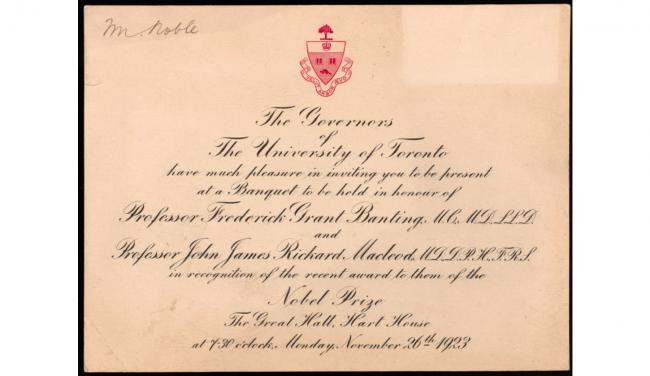 Mr. Noble
The Governors
of
The University of Toronto
have much pleasure in inviting you to be present
at a Banquet to be held in honour of
Professor Frederick Grant Banting, M.C., M.D., LL.D.
and
Professor John James Rickard Macleod, M.D., D.P.H., F.R.S.
in recognition of the recent award to them of the
Nobel Prize
The Great Hall, Hart House
at 7.30 o'clock, Monday, November 26th 1923